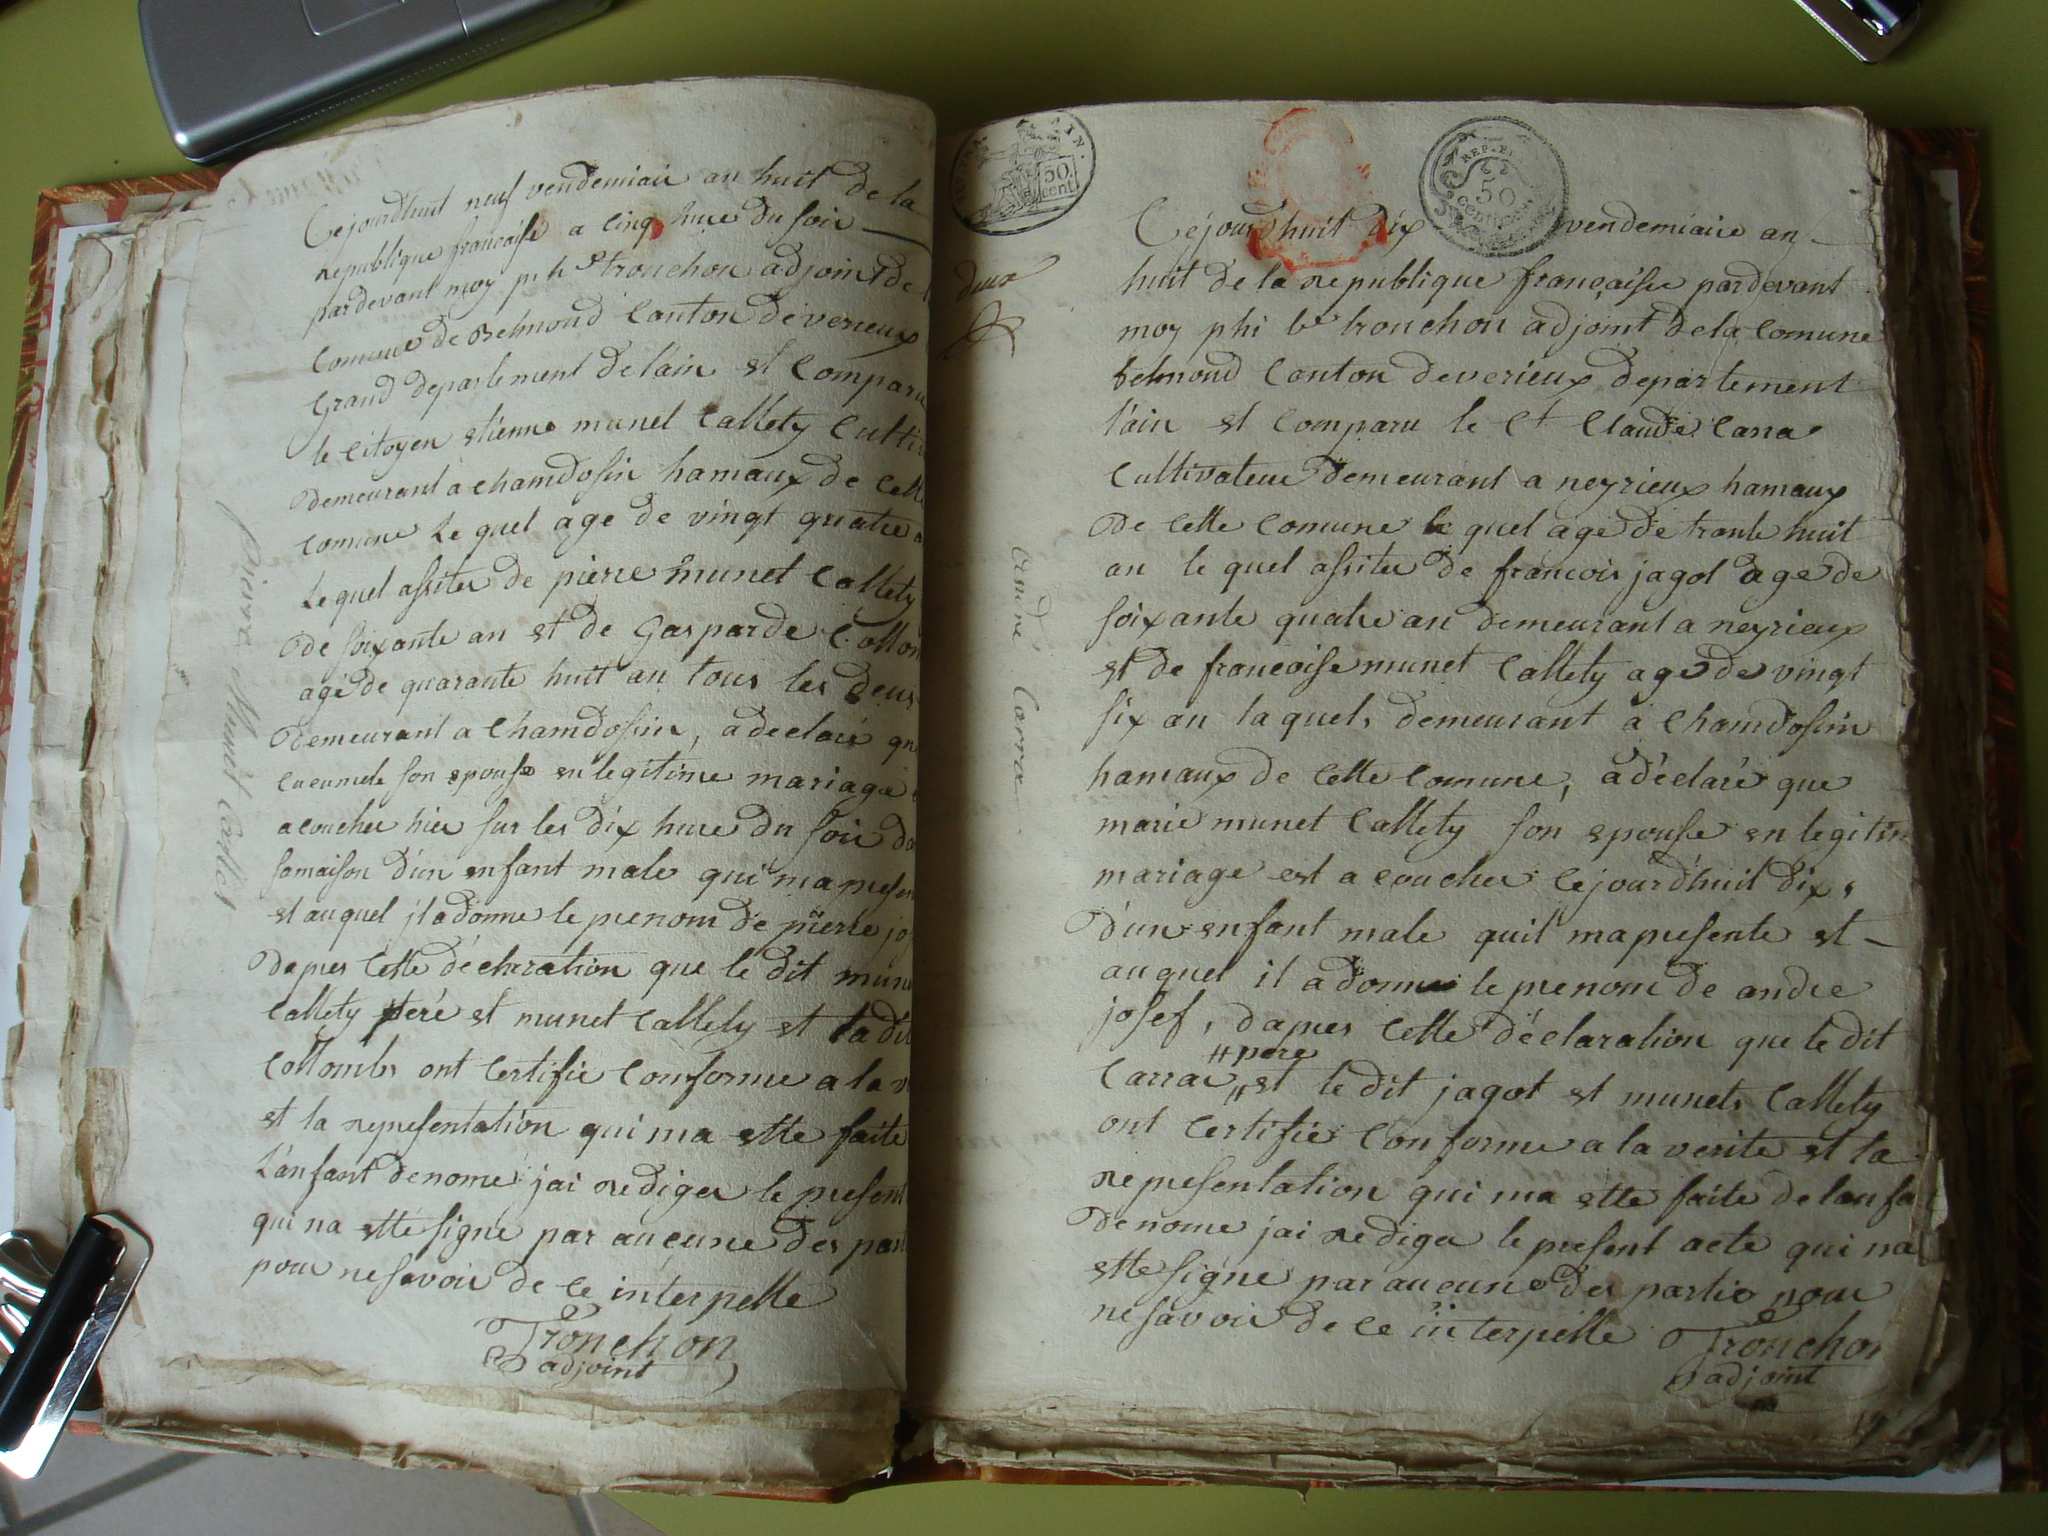 Cejourdhuit neuf vendemiair an huit de la
republique francaise a cinq hure du soir
pardevant moy ph bt tronchon adjoint de
comune de Belmond canton de verieux
grand departement de lain et comparu
le citoyen etienne munet Callety culti
demeurant a chamdossin hamaux de cette
comune le quel age de vingt quatre a
le quel assiter de pierre munet Callety
de soixante an et de gasparde Collom
agé de quarante huit an tous les deus
demeurant a Chamdossin, a declaré qu
son epouse en legitime mariage
acoucher hier sur les dix hure du soir da
samaison d'un enfant male qui ma presen
et auquel jl a donne le prenom de pierre jo
dapres cette déclaration que le dit mun
Callety peré et munet Callety et la dit
Collombs ont certifie conforme a la v
et la representation qui ma ette faite
L'anfant denomé jai rediger le present
qui na ette signe par aucune des part
pour ne savoir de ce interpelle
Tronchon
adjoint
pierre Munet Callet
50
cent
REP.
50
centimes
deux
Cejourdhuit dix vendemiaire an
huit de la republique françaisse pardevant
moy phi bt tronchon adjoint de la comune
belmond Canton deverieux departement
l'ain et comparu le Ct Claude Carra
Cultivateur demeurant a neyrieux hamaux
de cette comune le quel age de trante huit
an le quel assiter de francois jagot age de
soixante quatre an demeurant a neyrieux
et de francoise munet Callety age de vingt
six an laquels demeurant a chamdossin
hamaux de cette comune, a déclaré que
marie munet Callety son epouse en legitim
mariage est acoucher cejourd'huit dix,
d'un enfant male quil ma presente et
auquel il a donne le prenom de andre
josef, dapres cette déclaration que le dit
pere
Carra et le dit jagot et munets Callety
ont certifie conforme a la verite et la
representation qui ma ette faite de lanfa
denome jai rediger le present acte qui na
ette signe par aucune des partie pour
ne savoir de ce interpelle Tronchon
adjoint
andré Carra